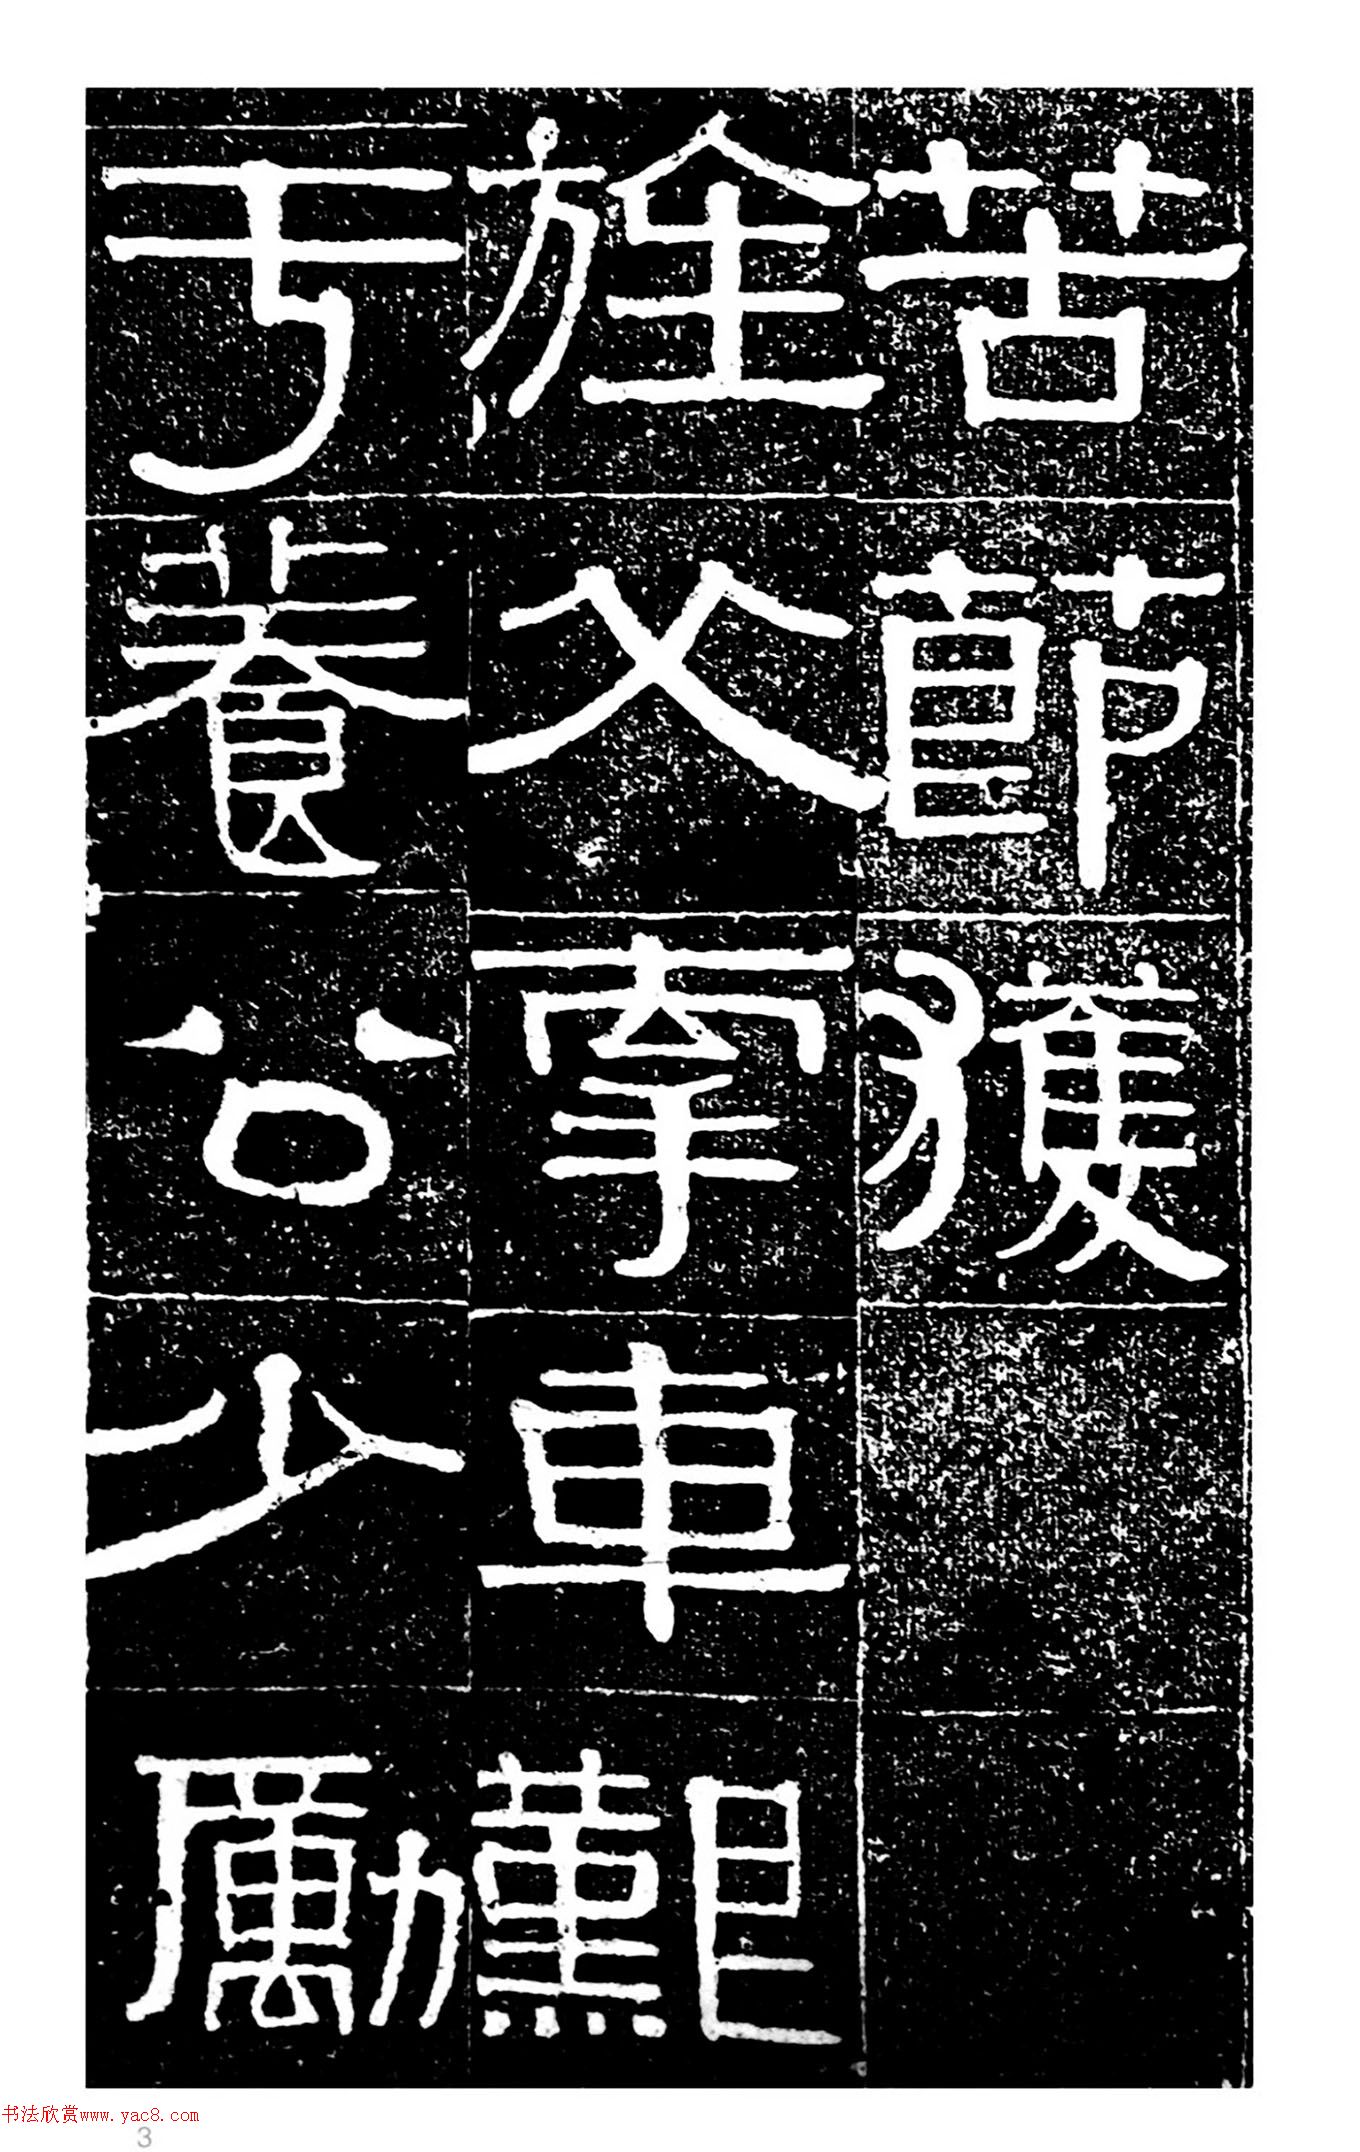 苦節獲
旌父拏車艱
于養公少勵
书法欣赏www.yac8.com
3